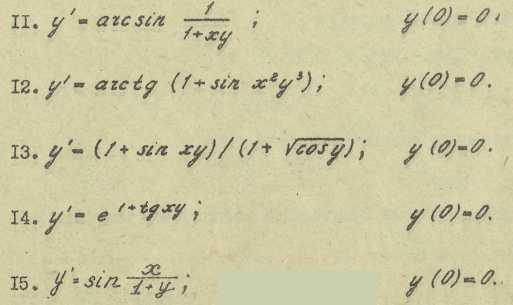 II. y' = arcsin 1/(1+xy) ; y(0) = 0.
I2. y' = arctg (1 + sin x²y³); y(0) = 0.
I3. y' = (1 + sin xy) / (1 + √cos y); y(0) = 0.
I4. y' = e^(1+tg xy); y(0) = 0.
I5. y' = sin x/(1+y); y(0) = 0.